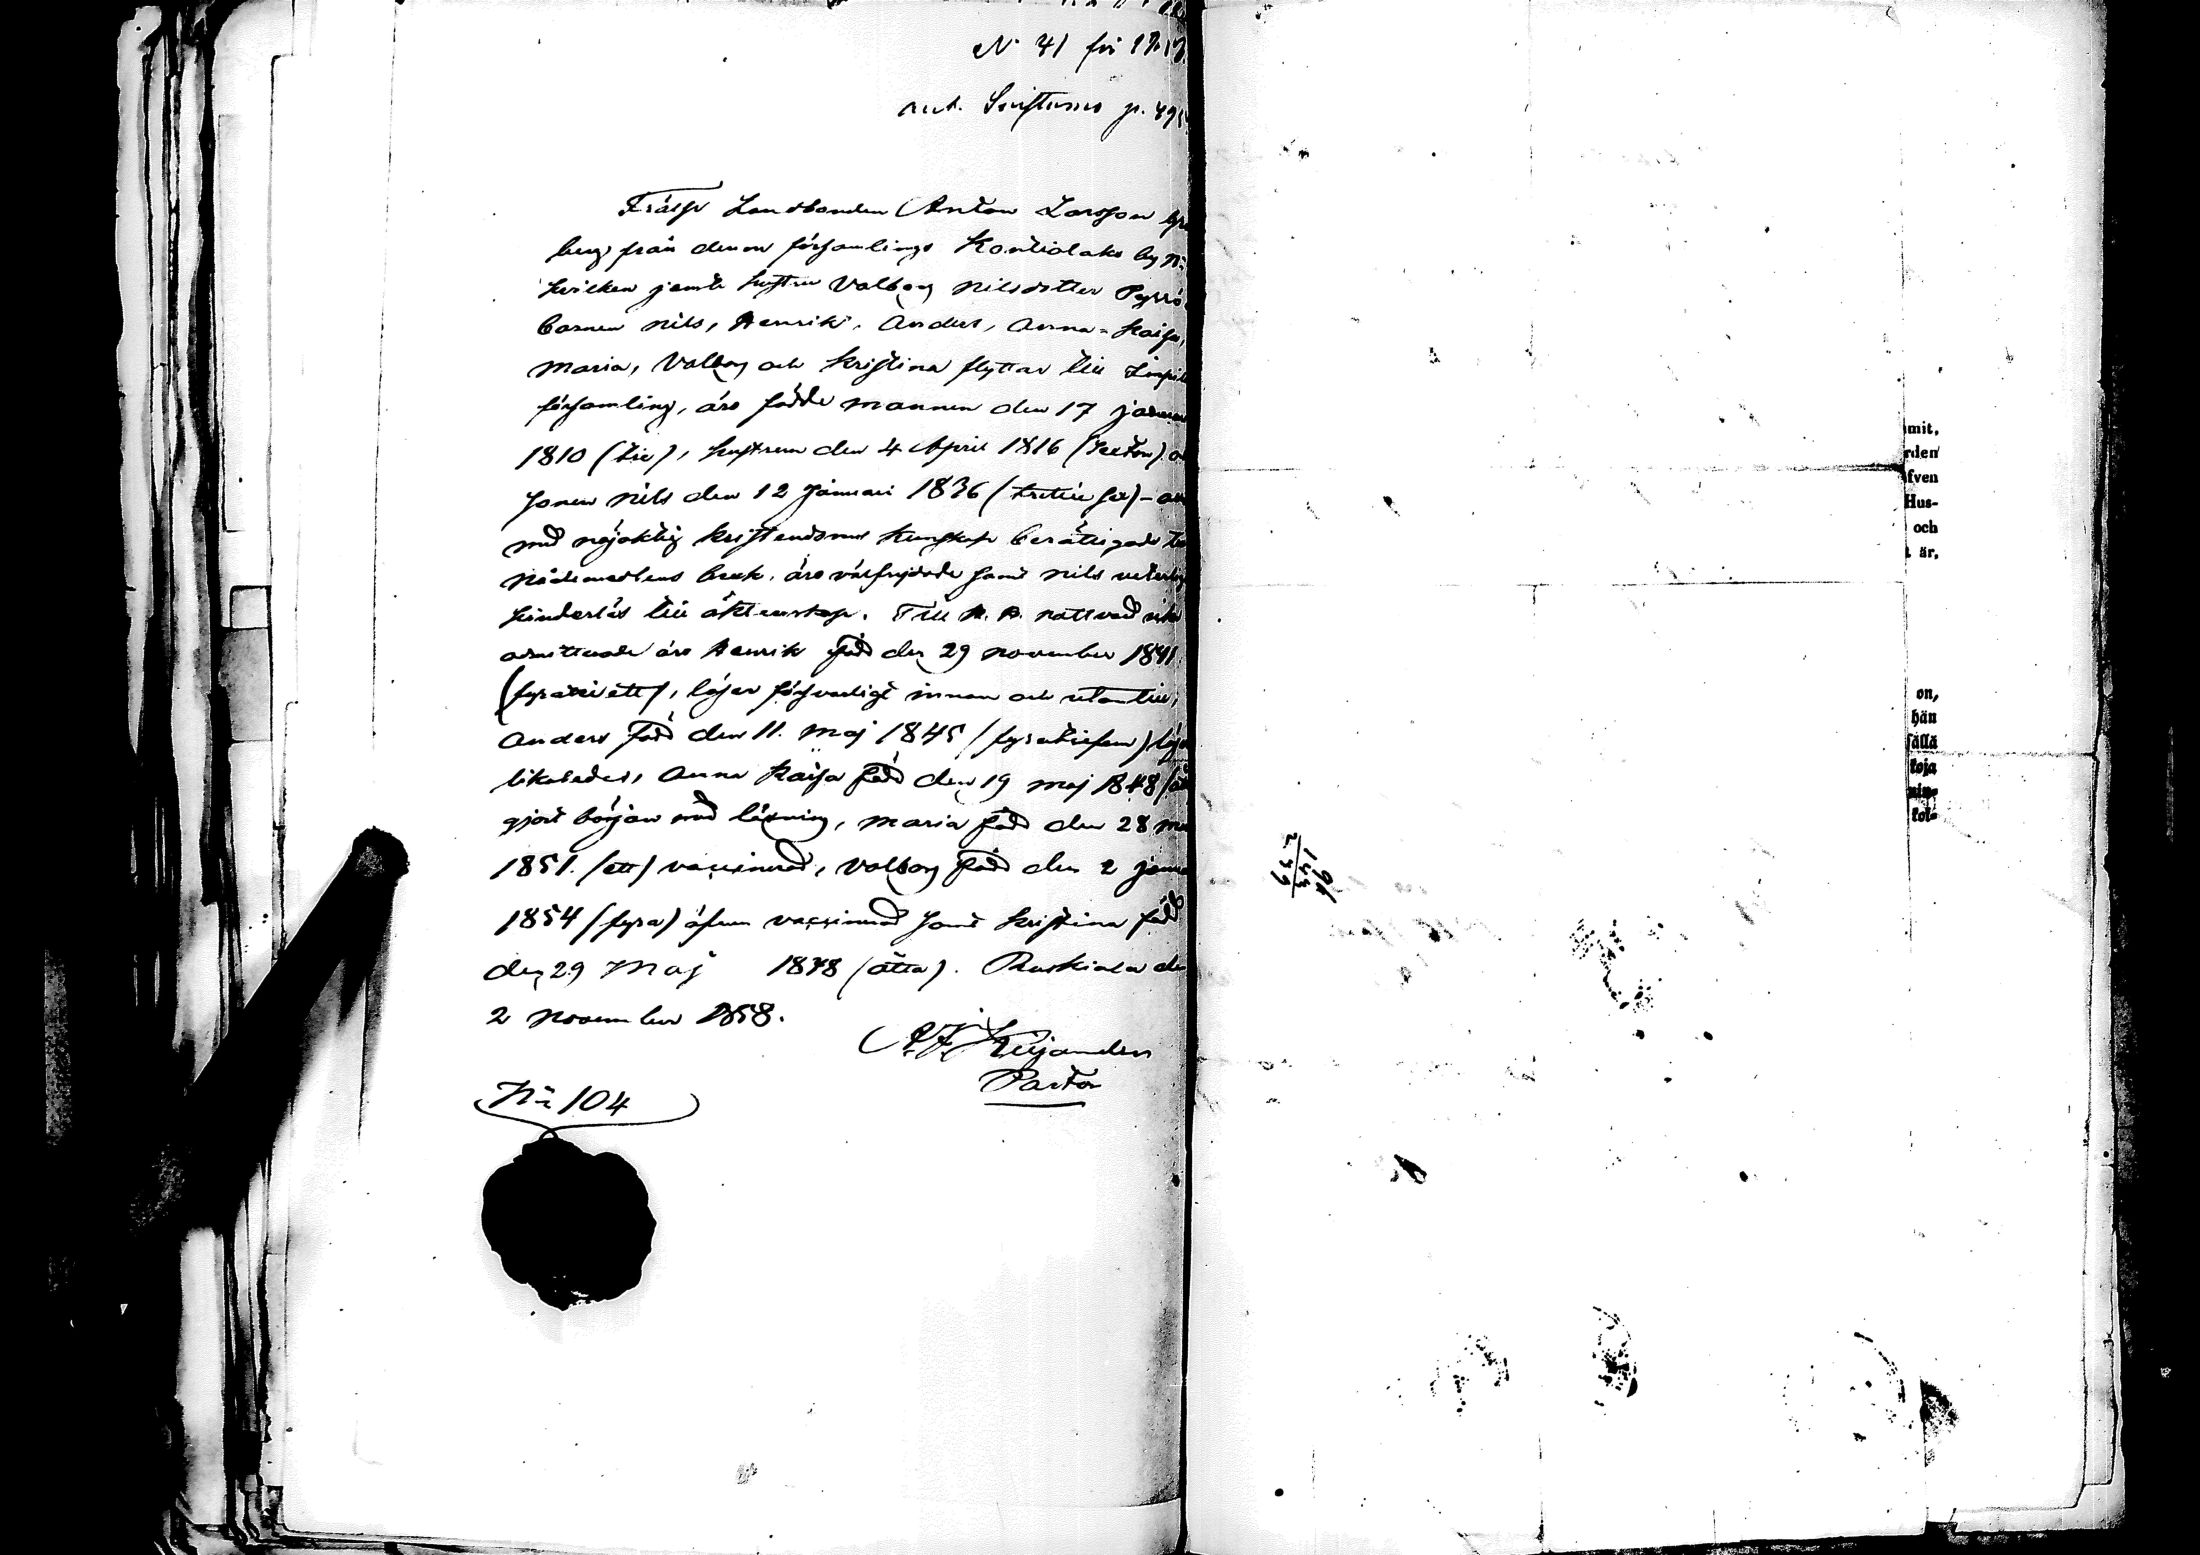 N: 41 för 1
ant. p. 49
Frälse Landbonden Anton Larsson
berg från denna församlings Kontiolaks by N:
hvilken jemte hustru Valborg Nilsdotter Pyrrö
barnen Nils, Henrik, Anders, Anna-Kaisa,
Maria, Valborg och Kristina flyttar till
församling, äro födde mannen den 17 januari
1810 (tio), hustrun den 4 April 1816 (sexton)
sonen Nils den 12 Januari 1836 (trettiosex) -
med nöjaktig kristendoms kunskap berättigade
nådemedlens bruk, äro välfrejdade samt Nils veterlig
hinderlös till äktenskap. Till H. H. nattvard icke
admitterade äro Henrik född den 29 november 1841
(fyratiett), läser försvarligt innan och utantill,
Anders född den 11. Maj 1845 (fyratiefem)
likaledes, Anna Kaisa född den 19 maj 1848
gjort början med läsning, Maria född den 28
1851. (ett) vaccinerad, Valborg född den 2
1854 (fyra) äfven vaccinerad samt Kristina född
den 29 Maj 1858 (åtta). Ruskiala den
2 November 1858.
Pastor
N:o 104
mit,
rden
fven
Hus-
och
t är,
on,
hän
sällä
koja